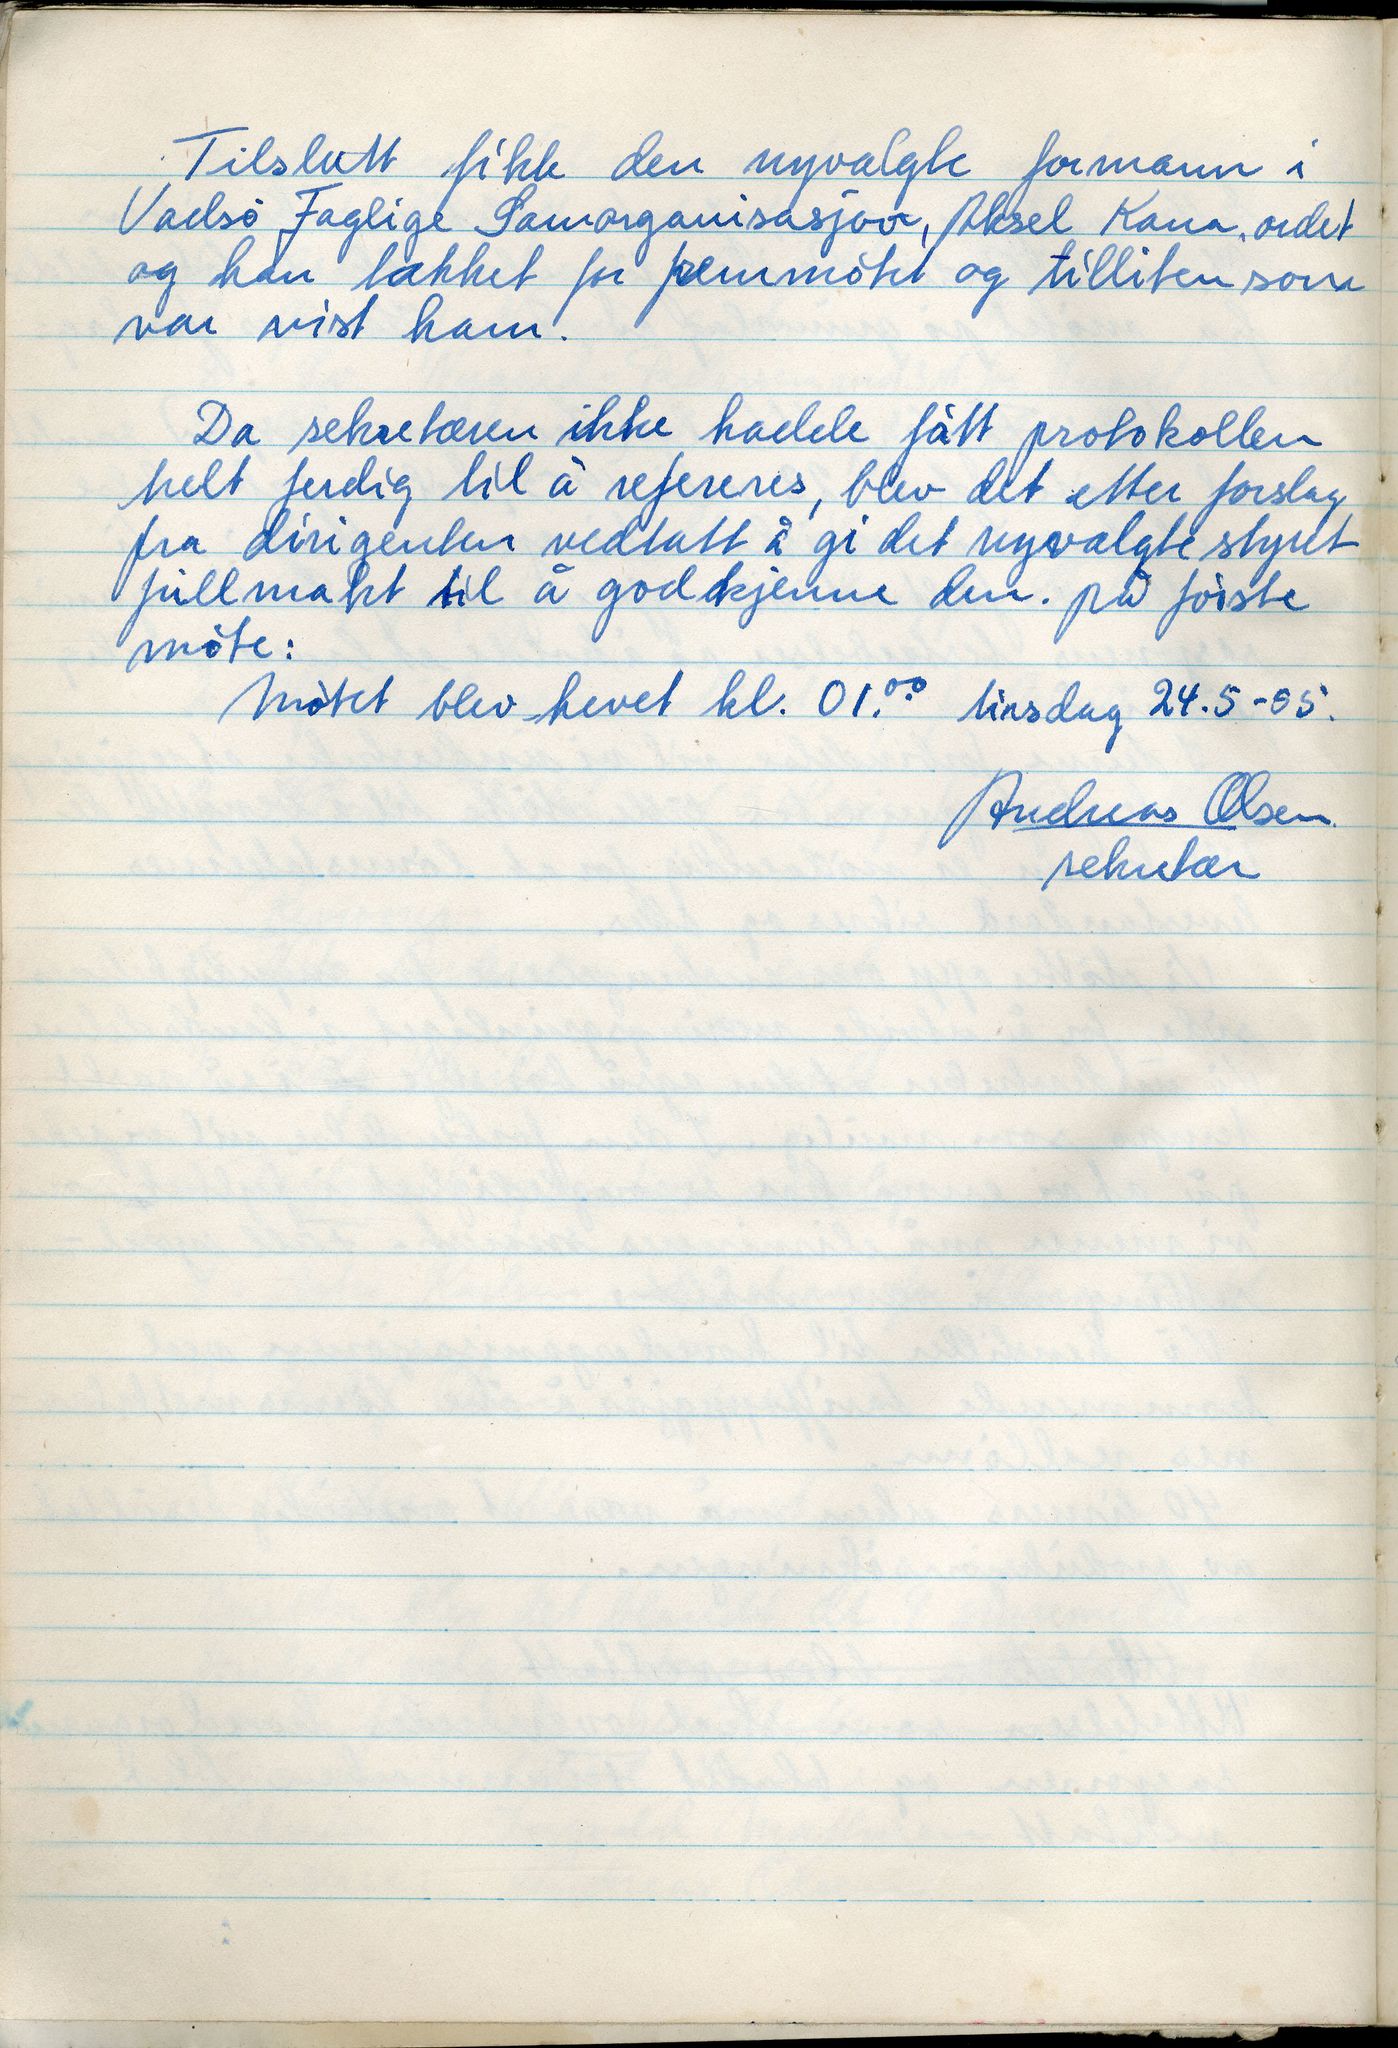 Tilslutt fikk den nyvalgte formann i
Vadsö Faglige Samorganisasjon, Aksel Kana, ordet
og han takket for fremmötet og tilliten som
var vist ham.
Da sekretæren ikke hadde fått protokollen
helt ferdig til å refereres, blev det etter forslag
fra dirigenten vedtatt å gi det nyvalgte styret
fullmakt til å godkjenne den. på förste
möte:
Mötet blev hevet kl. 01.00 tirsdag 24.5-65.
Andreas Olsen
sekretær